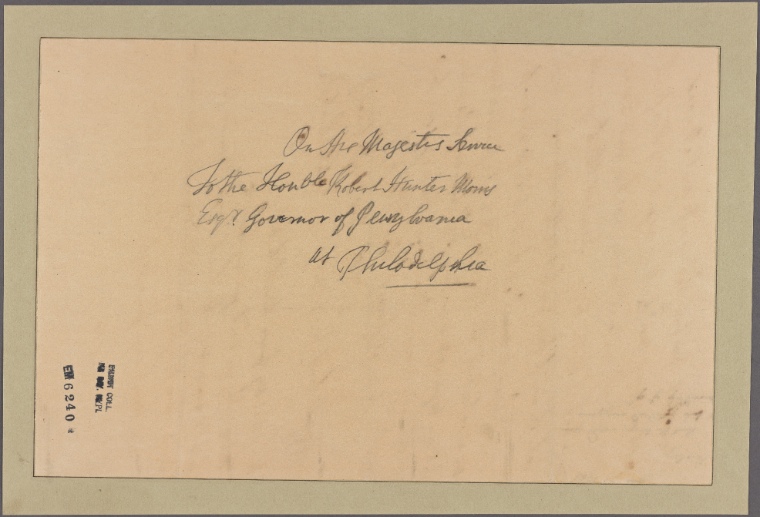 On His Majestis Service
To the Honble Robert Hunter Morris
Esqr Governor of Pensylvania
at Philadelphia
EMMET COLL.
EM 6240